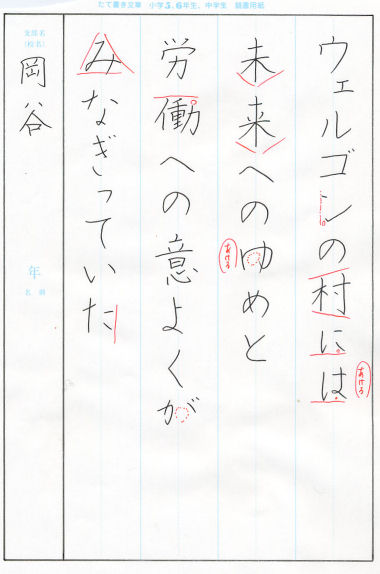 たて書き文章 小学5、6年生、中学生 競書用紙
ウェルゴンの村には
あける
未来へのゆめと
あける
労働への意よくが
みなぎっていた
支部名
(校名)
岡谷
年
名前